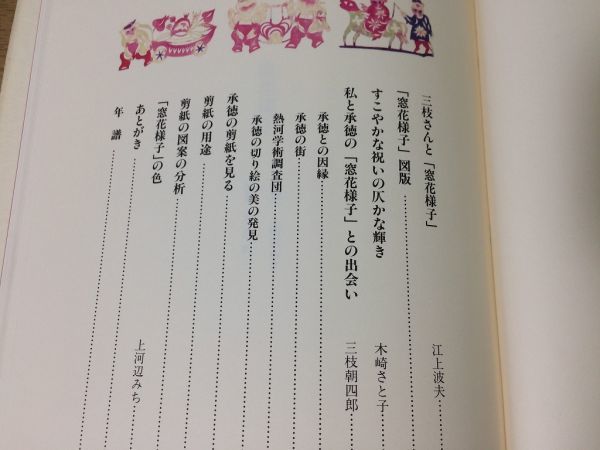 三枝さんと「窓花様子」 江上波夫
「窓花様子」図版
すこやかな祝いの仄かな輝き 木崎さと子
私と承徳の「窓花様子」との出会い 三枝朝四郎
承徳との因縁
承徳の街
熱河学術調査団
承徳の切り絵の美の発見
承徳の剪紙を見る
剪紙の用途
剪紙の図案の分析
「窓花様子」の色
あとがき 上河辺みち
年譜